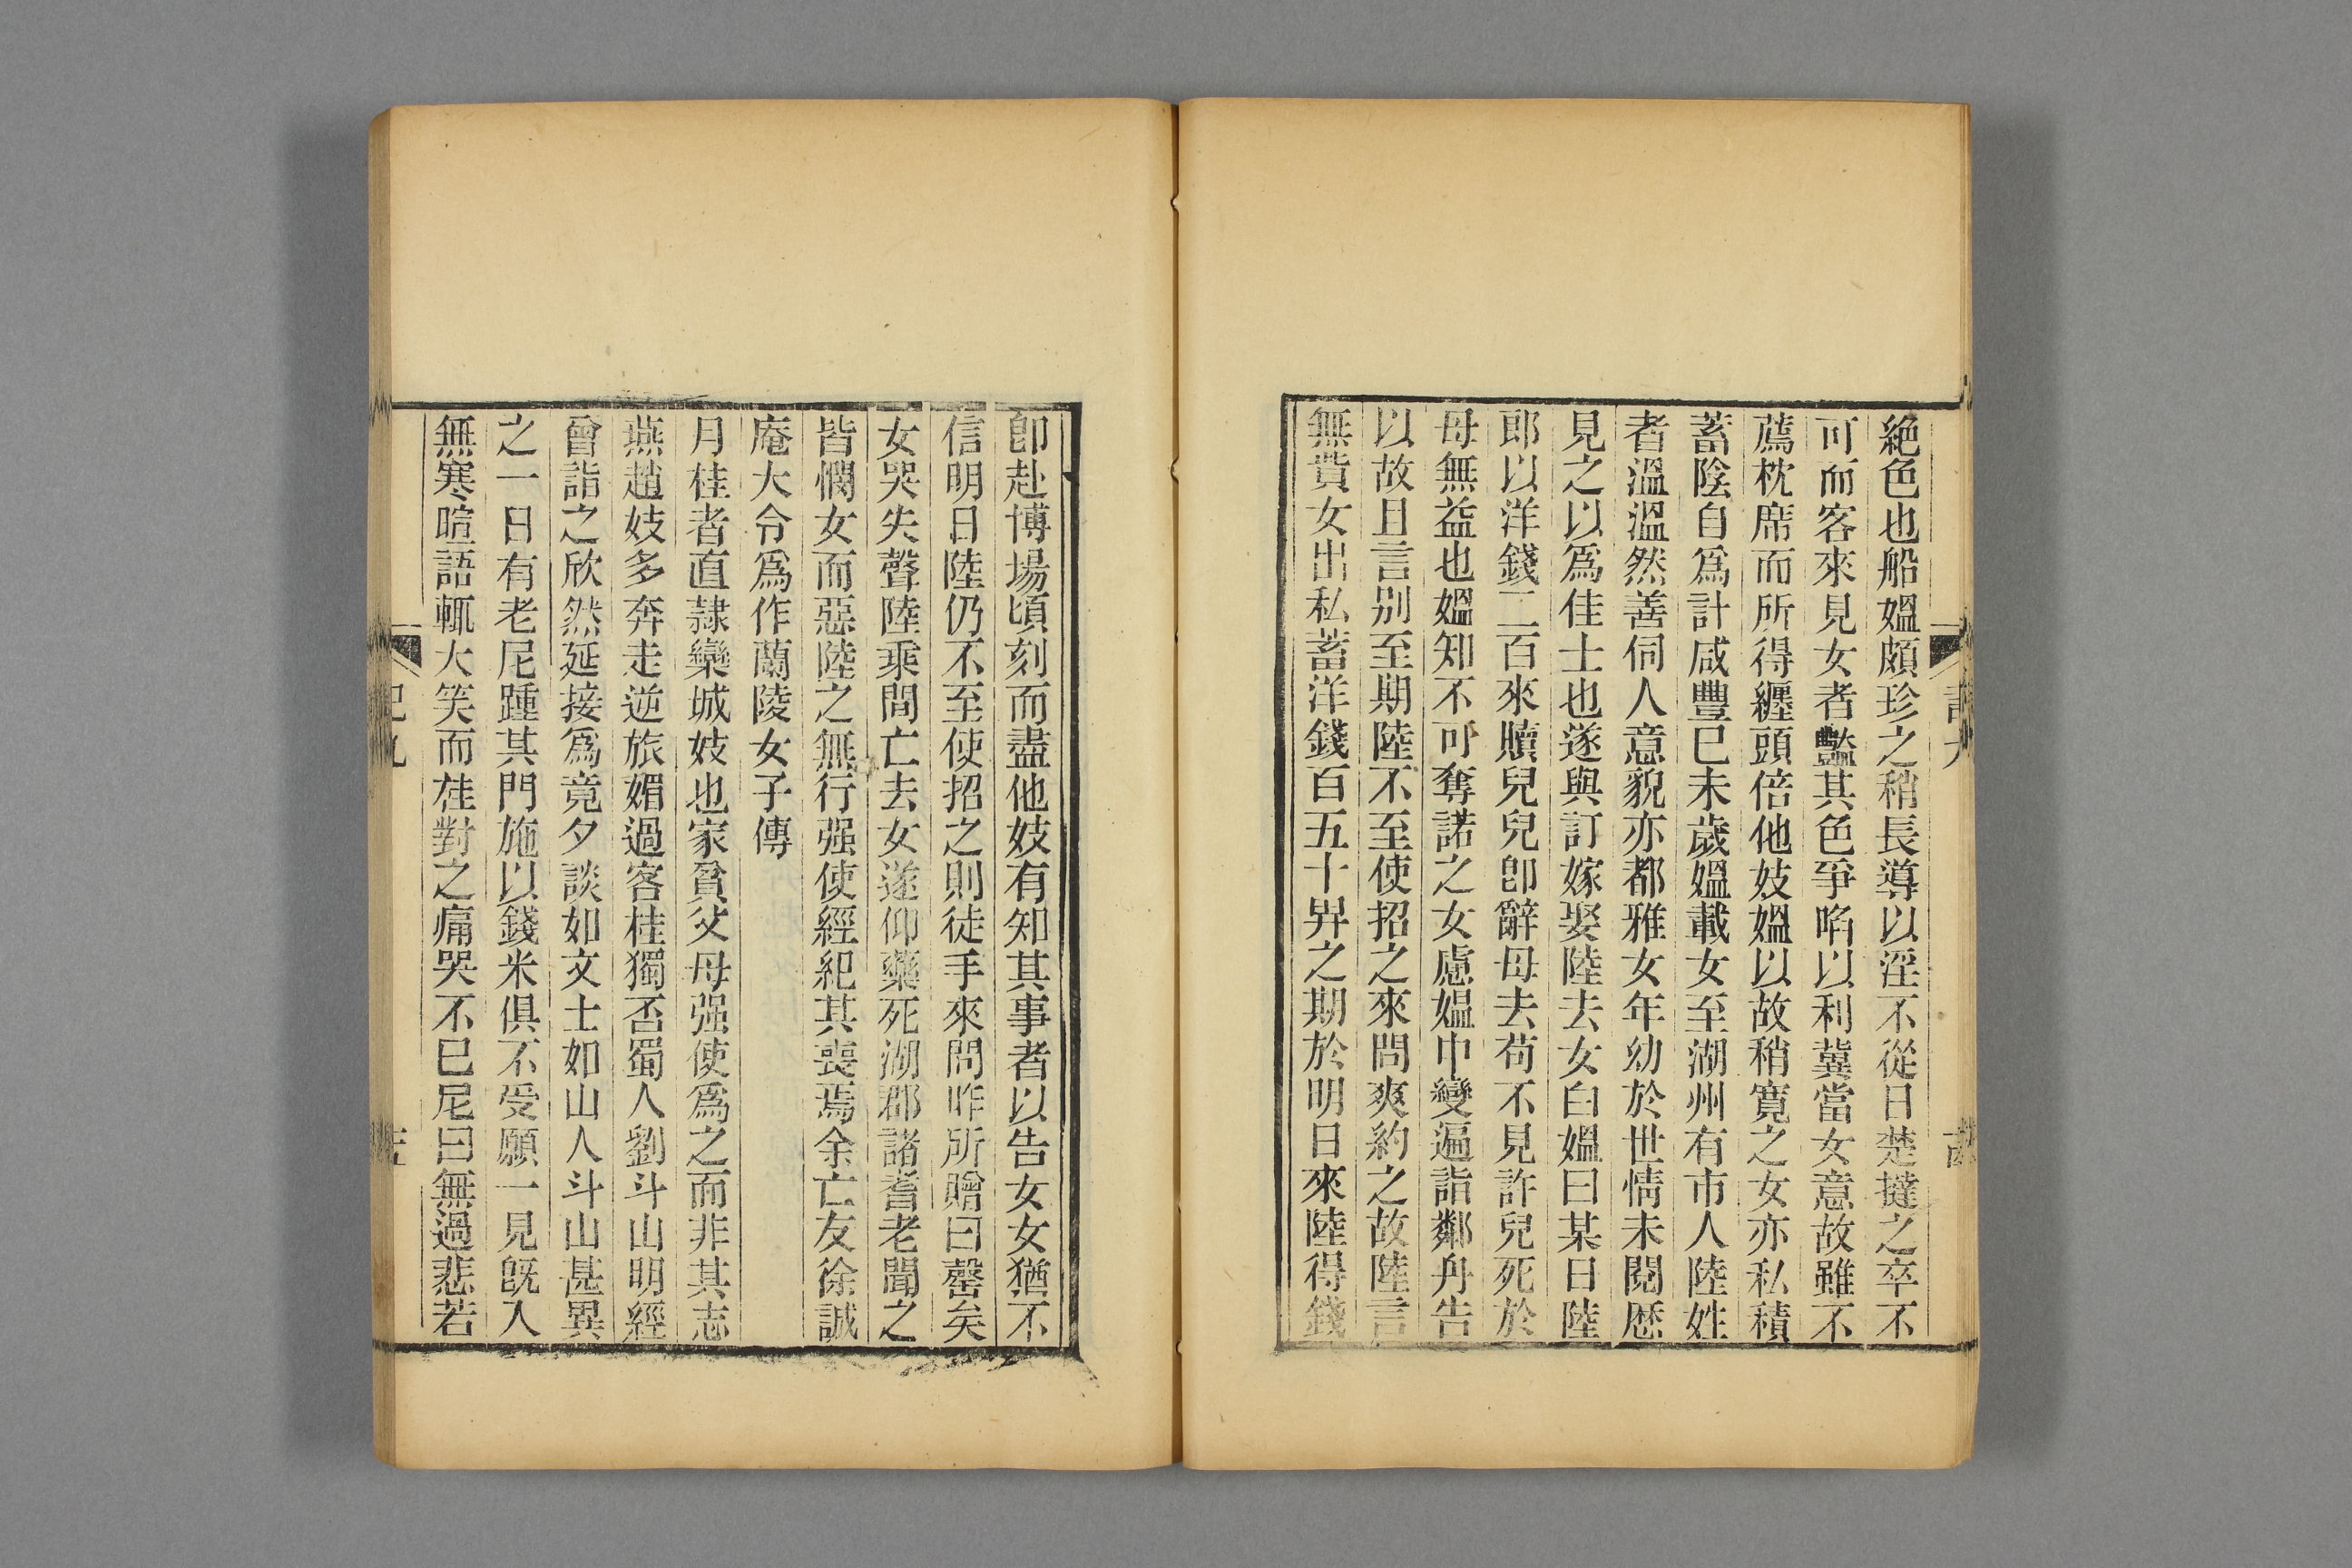 絶色也船媼頗珍之稍長導以淫不從日楚撻之卒不
可而客來見女者豔其色爭啗以利冀當女意故雖不
薦枕席而所得纏頭倍他妓媼以故稍寬之女亦私積
蓄陰自爲計咸豐已未歲媼載女至湖州有市人陸姓
者溫溫然善伺人意貌亦都雅女年幼於世情未閱歷
見之以爲佳士也遂與訂嫁娶陸去女白媼曰某日陸
郎以洋錢二百來贖兒兒卽辭母去苟不見許兒死於
母無益也媼知不可奪諾之女慮媼中變遍詣鄰舟告
以故且言别至期陸不至使招之來問爽約之故陸言
無貲女出私蓄洋錢百五十畀之期於明日來陸得錢
卽赴博場頃刻而盡他妓有知其事者以告女女猶不
信明日陸仍不至使招之則徒手來問昨所贈曰罄矣
女哭失聲陸乘間亡去女遂仰藥死湖郡諸耆老聞之
皆憫女而惡陸之無行强使經紀其喪焉余亡友徐誠
庵大令爲作蘭陵女子傳
月桂者直隷欒城妓也家貧父母强使爲之而非其志
燕趙妓多奔走逆旅媚過客桂獨否蜀人劉斗山明經
曾詣之欣然延接爲竟夕談如文士如山人斗山甚異
之一日有老尼踵其門施以錢米俱不受願一見旣入
無寒喧語輒大笑而桂對之痛哭不已尼曰無過悲若